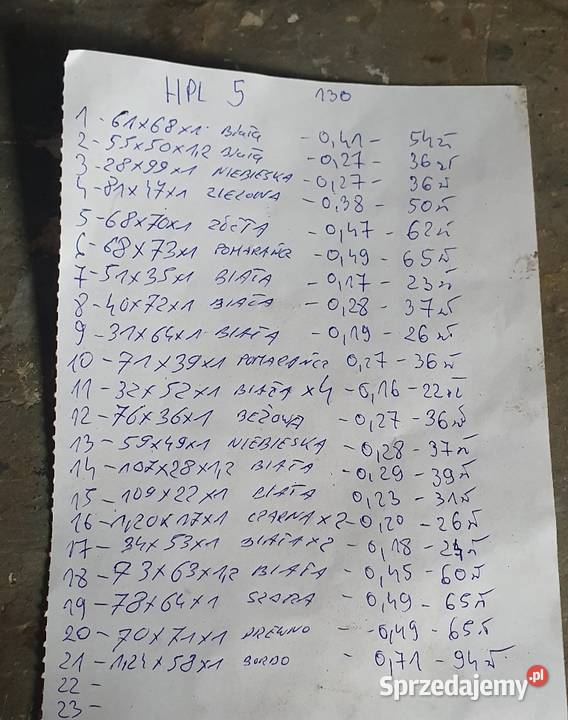 HPL 5 130
1 - 61x68x1 BIAŁA - 0,41 - 54 zł
2 - 55x50x1,2 BIAŁA - 0,27 - 36 zł
3 - 28x99x1 NIEBIESKA - 0,27 - 36 zł
4 - 81x47x1 ZIELONA - 0,38 - 50 zł
5 - 68x70x1 ŻÓŁTA - 0,47 - 62 zł
6 - 68x73x1 POMARAŃCZ - 0,49 - 65 zł
7 - 51x35x1 BIAŁA - 0,17 - 23 zł
8 - 40x72x1 BIAŁA - 0,28 - 37 zł
9 - 31x64x1 BIAŁA - 0,19 - 26 zł
10 - 71x39x1 POMARAŃCZ 0,27 - 36 zł
11 - 32x52x1 BIAŁA x4 - 0,16 - 22 zł
12 - 76x36x1 BEŻOWA - 0,27 - 36 zł
13 - 59x49x1 NIEBIESKA - 0,28 - 37 zł
14 - 107x28x1,2 BIAŁA - 0,29 - 39 zł
15 - 109x22x1 BIAŁA 0,23 - 31 zł
16 - 1,20x17x1 CZARNA x2 - 0,20 - 26 zł
17 - 34x53x1 BIAŁA x2 - 0,18 - 24 zł
18 - 73x63x1,2 BIAŁA - 0,45 - 60 zł
19 - 78x64x1 SZARA - 0,49 - 65 zł
20 - 70x71x1 DREWNO - 0,49 - 65 zł
21 - 1,24x58x1 BORDO - 0,71 - 94 zł
22 -
23 -
Sprzedajemy.pl